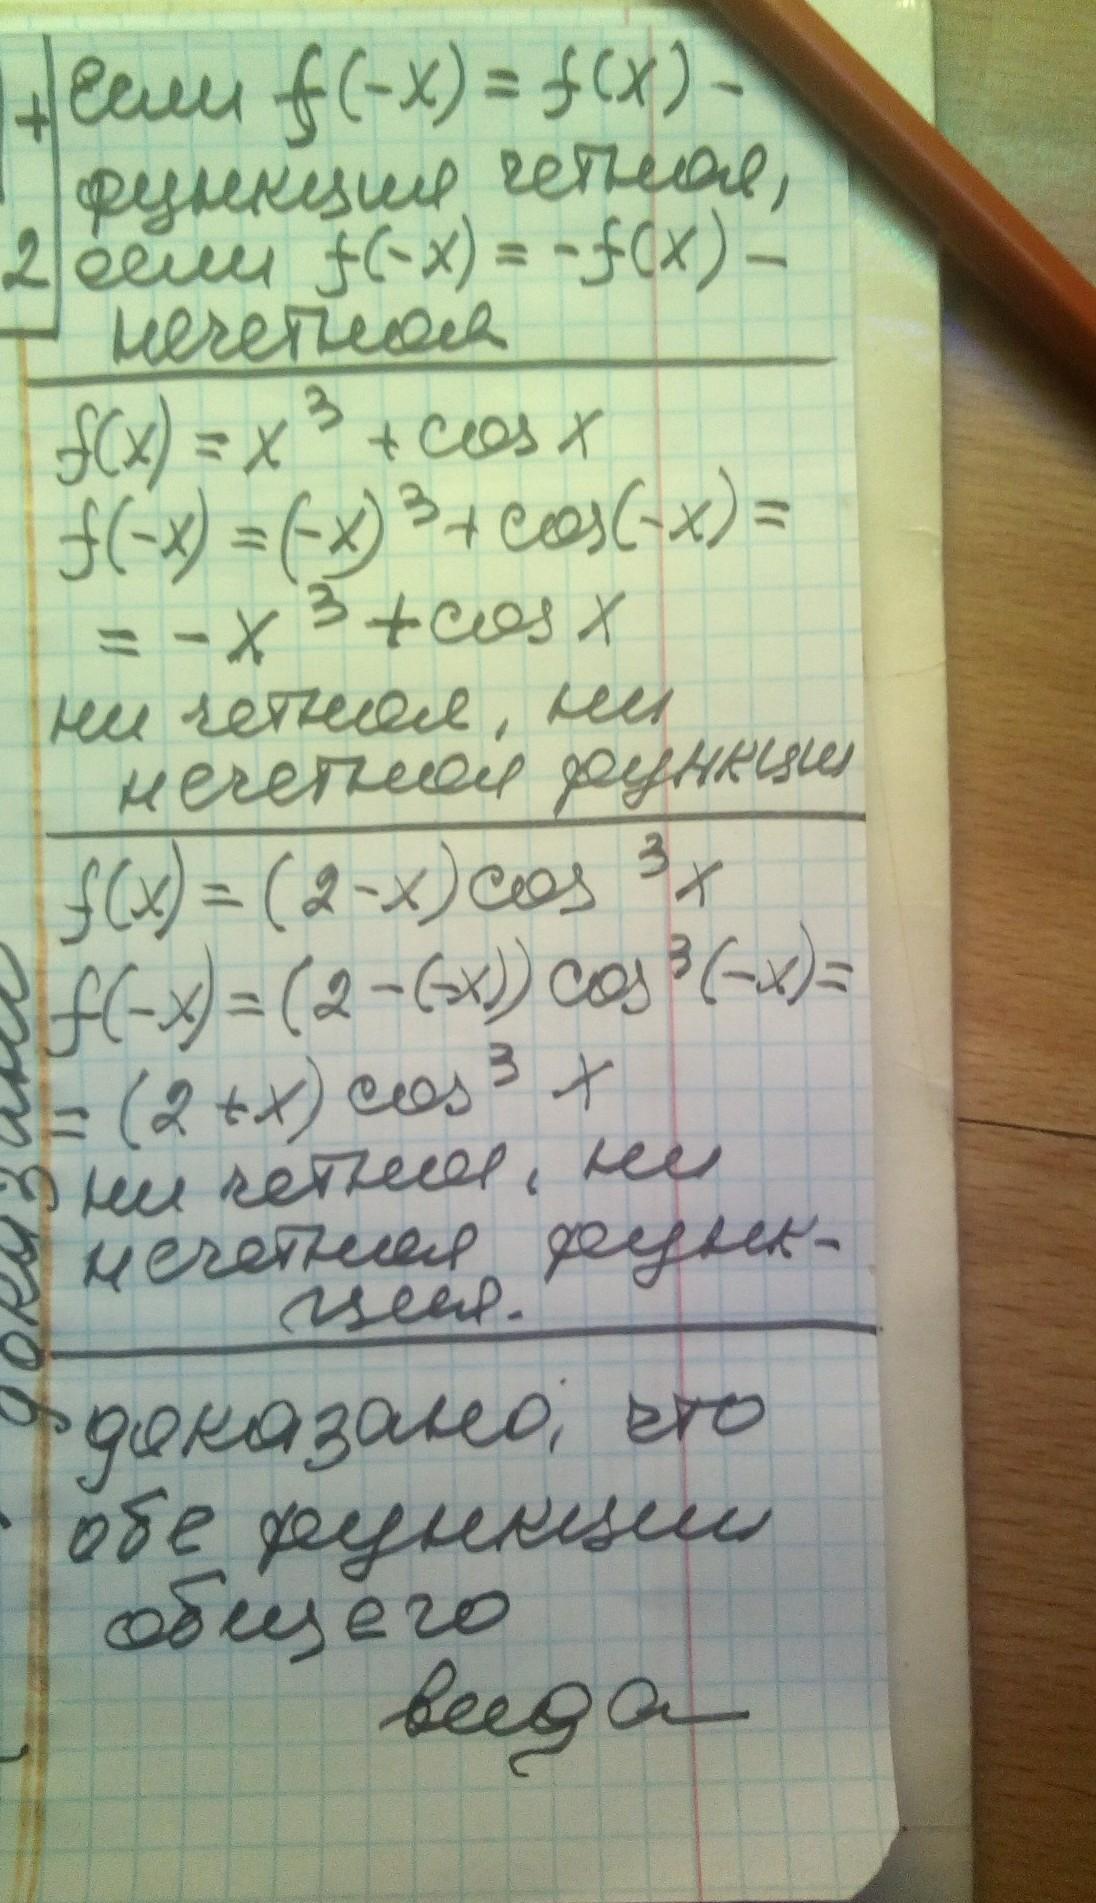 + если f(-x) = f(x) -
функция четная,
2 если f(-x) = -f(x) -
нечетная
f(x) = x³ + cos x
f(-x) = (-x)³ + cos(-x) =
= -x³ + cos x
ни четная, ни
нечетная функции
f(x) = (2-x) cos³x
f(-x) = (2-(-x)) cos³(-x) =
= (2+x) cos³ x
ни четная, ни
нечетная функ-
ция.
доказано, что
обе функции
общего
вида
доказано